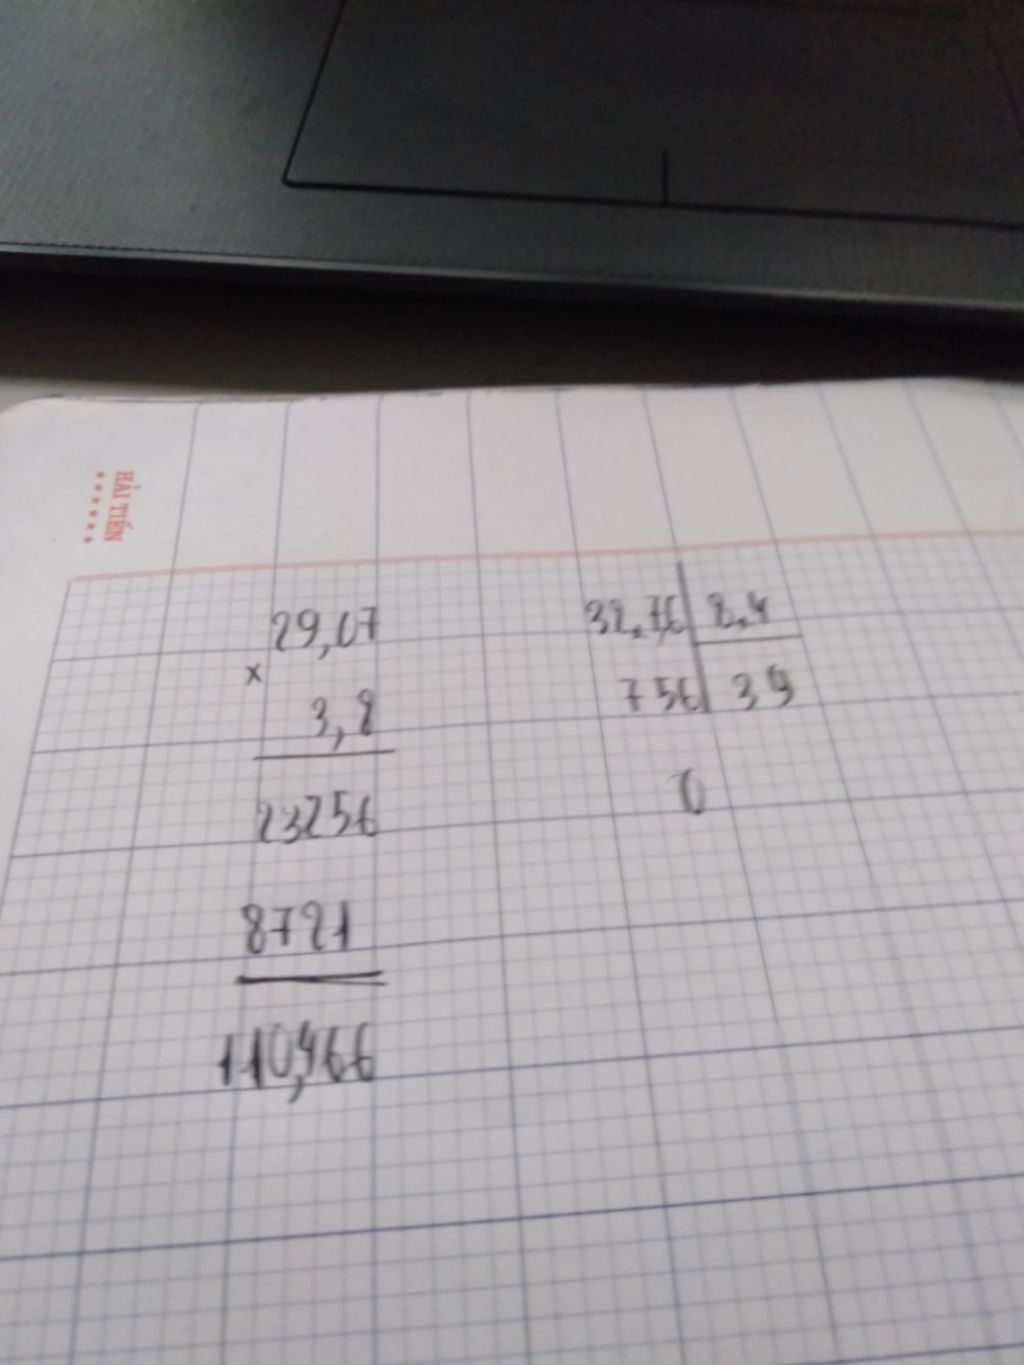 HẢI TIẾN
29,07
x
3,8
23256
8721
110,466
32,76 8,4
756 39
0